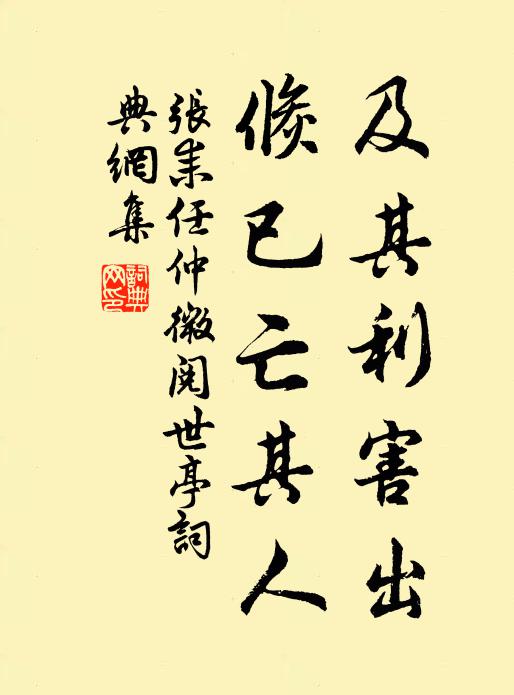 及其利害出
倏已亡其人
張耒任仲微閱世亭詞
典網集
詞典
网印